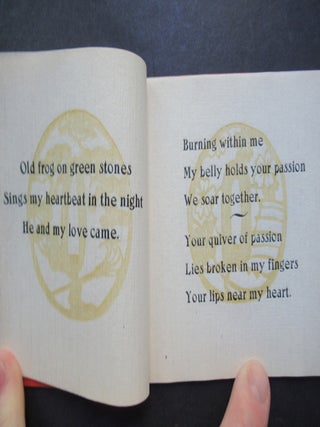 Old frog on green stones
Sings my heartbeat in the night
He and my love came.
Burning within me
My belly holds your passion
We soar together.
~
Your quiver of passion
Lies broken in my fingers
Your lips near my heart.